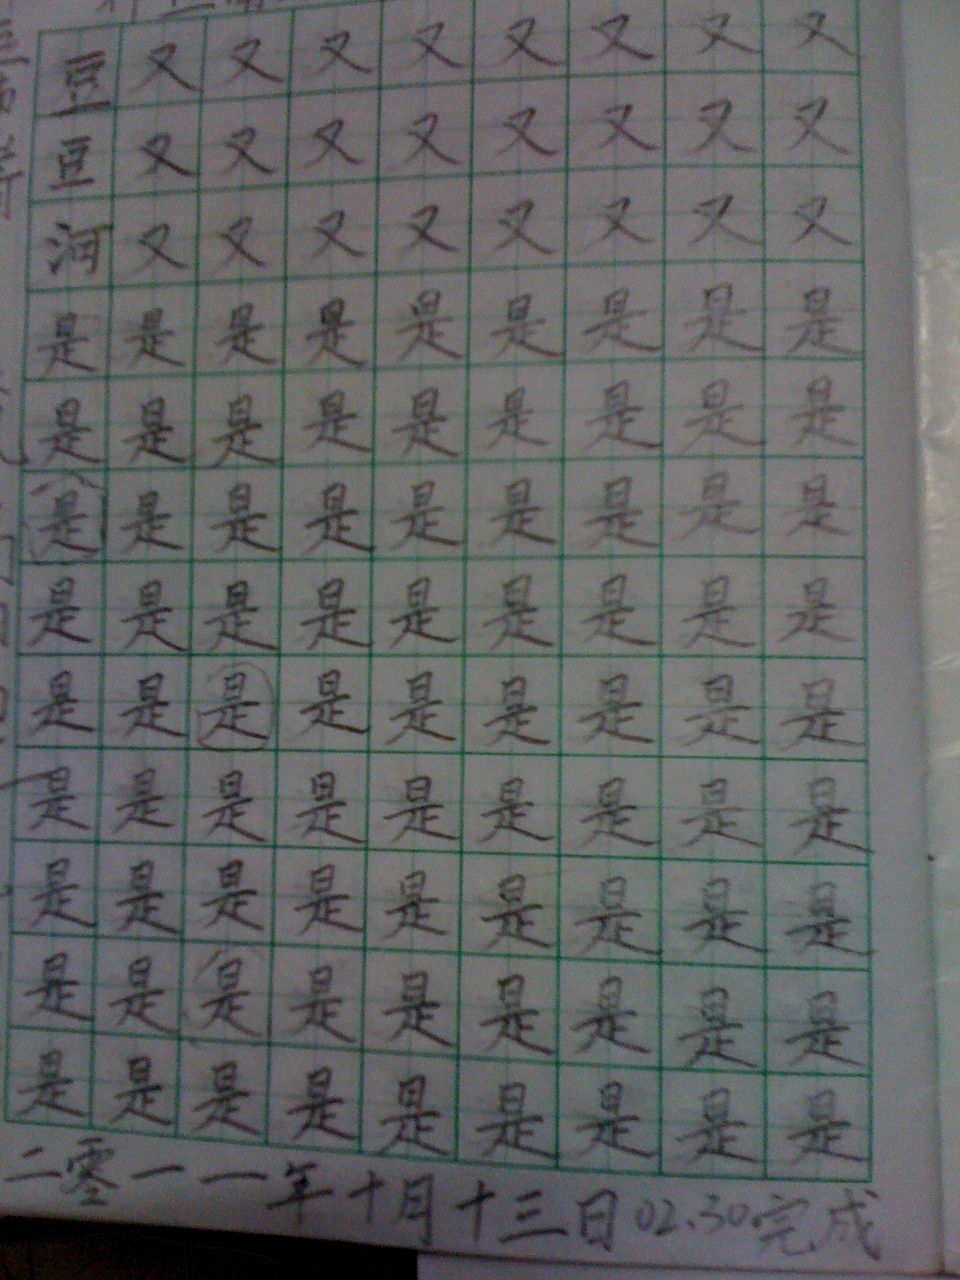 豆又又又又又又又又
豆又又又又又又又又
河又又又又又又又又
是是是是是是是是是
是是是是是是是是是
是是是是是是是是是
是是是是是是是是是
是是是是是是是是是
是是是是是是是是是
是是是是是是是是是
是是是是是是是是是
是是是是是是是是是
二零一一年十月十三日02.30完成